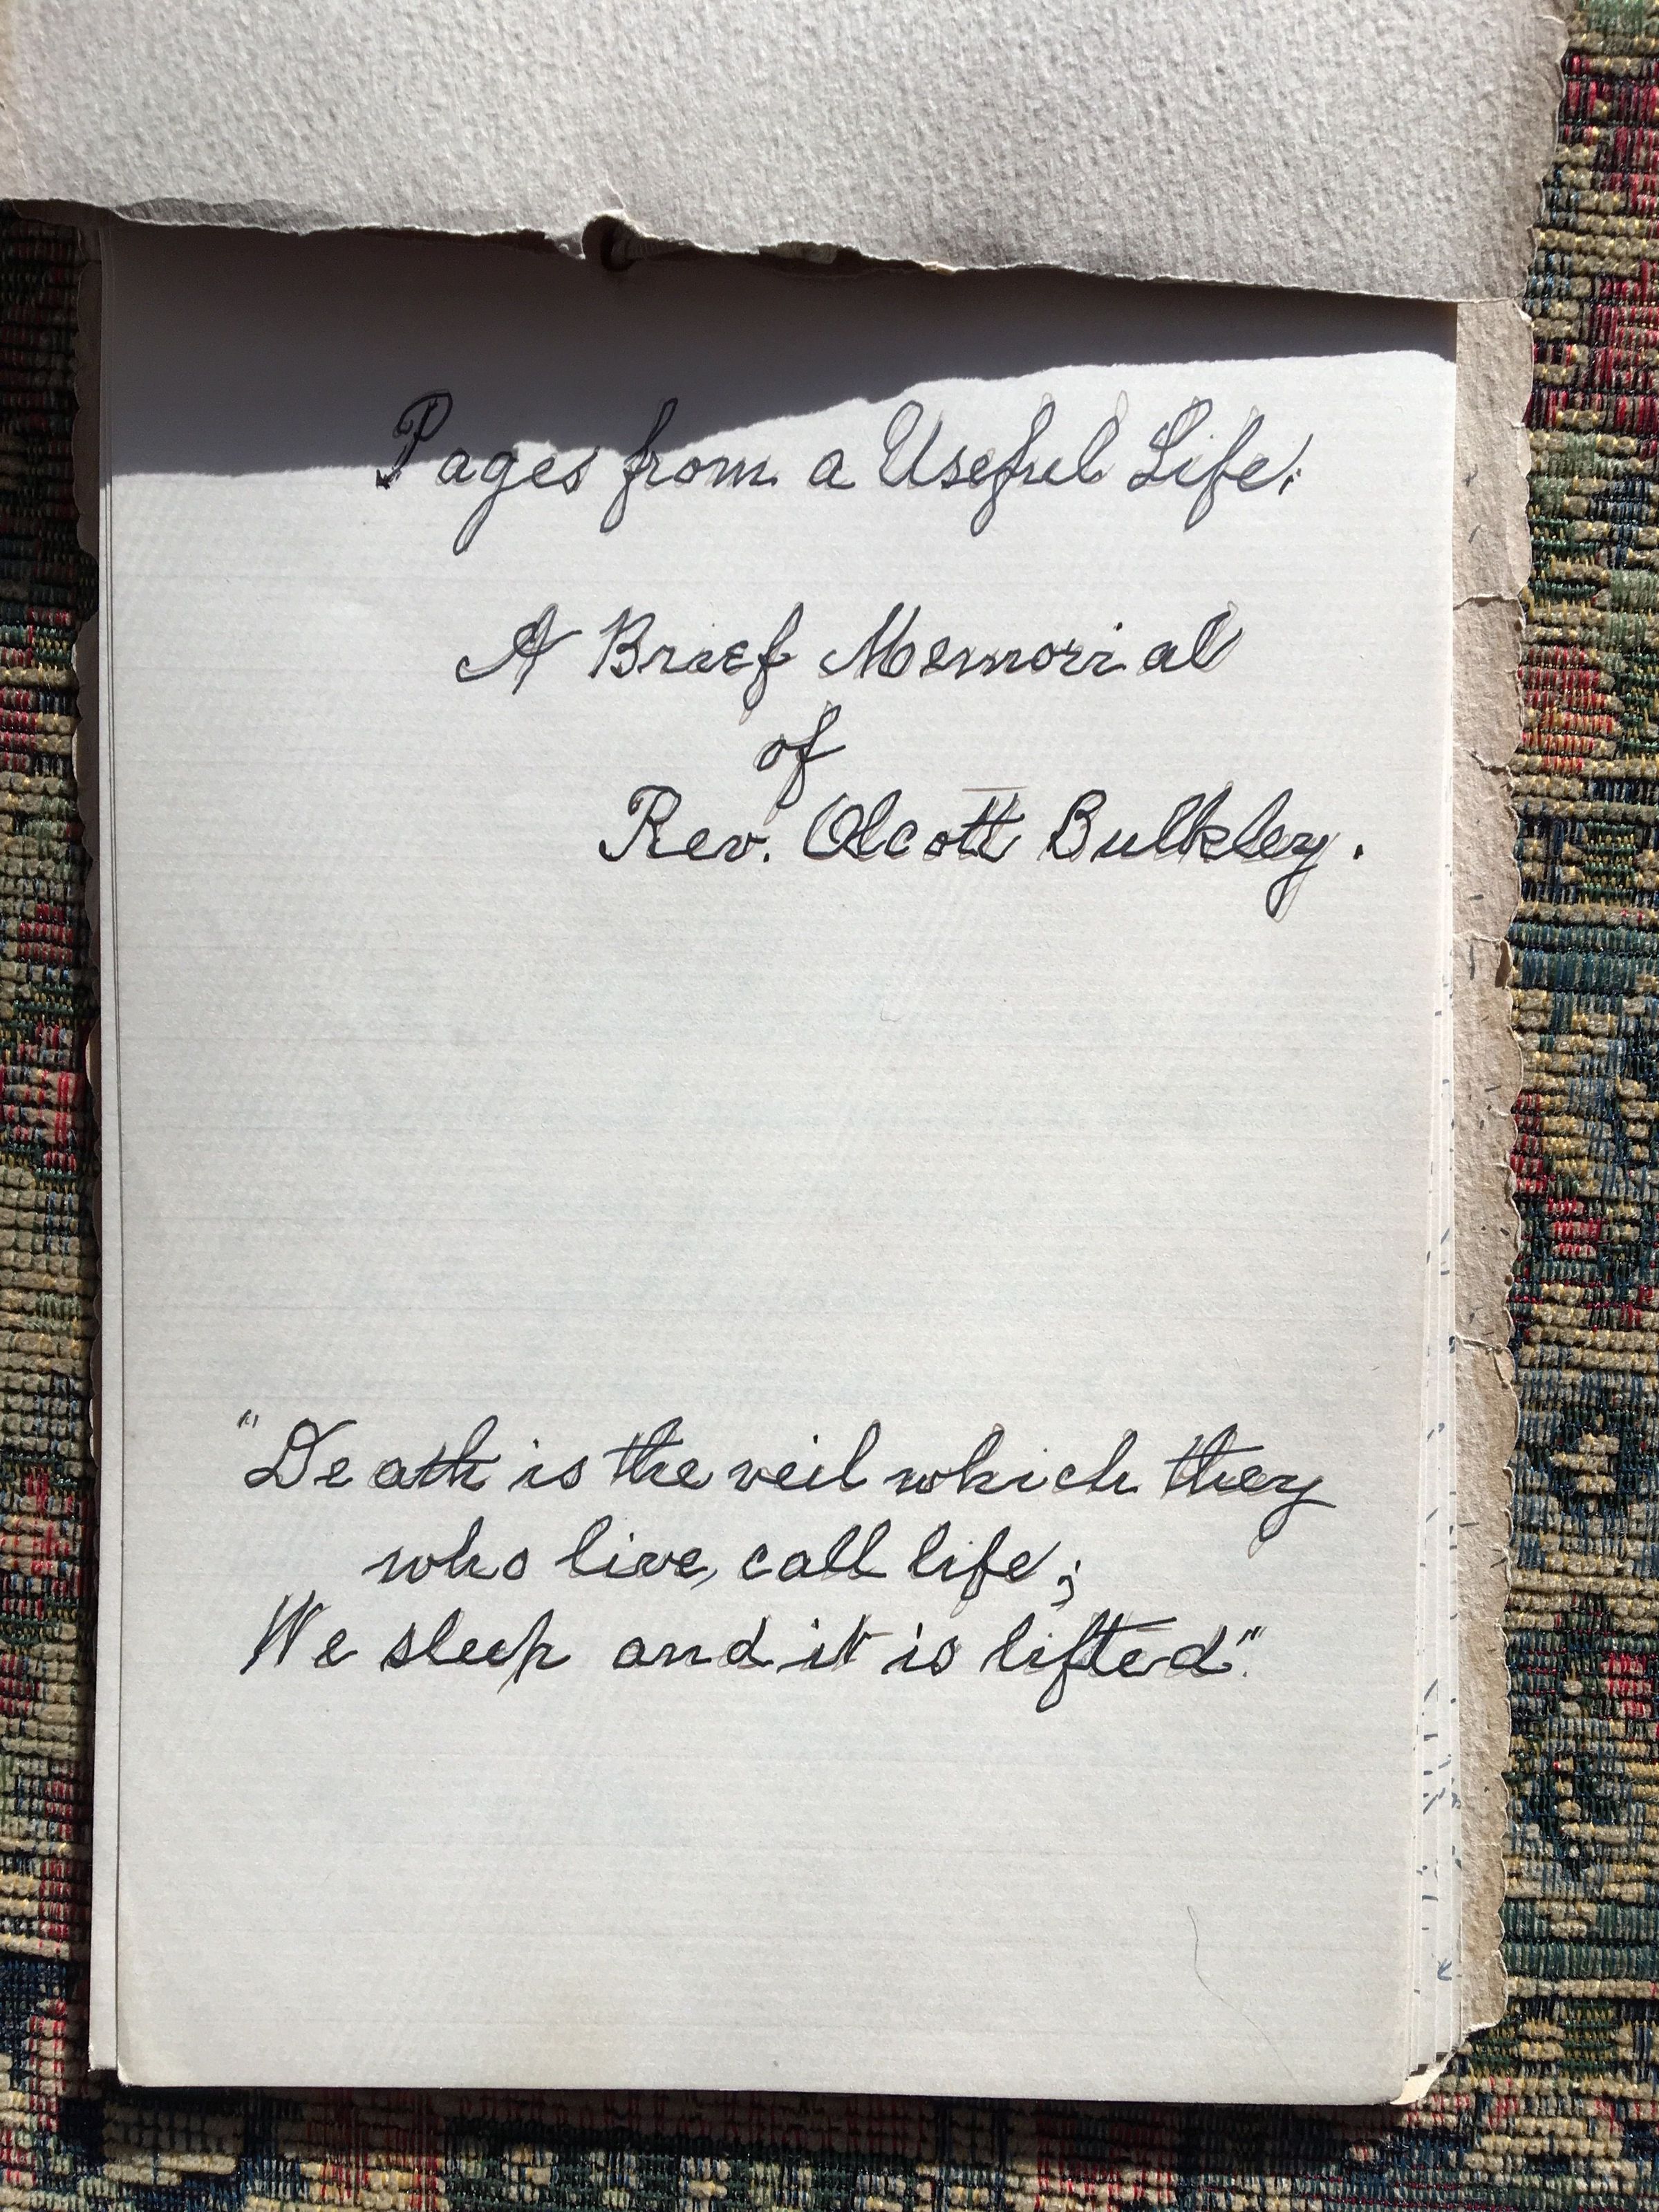 Pages from a Useful Life:
A Brief Memorial
of
Rev. Olcott Bulkley.
"Death is the veil which they
who live, call life;
We sleep and it is lifted".